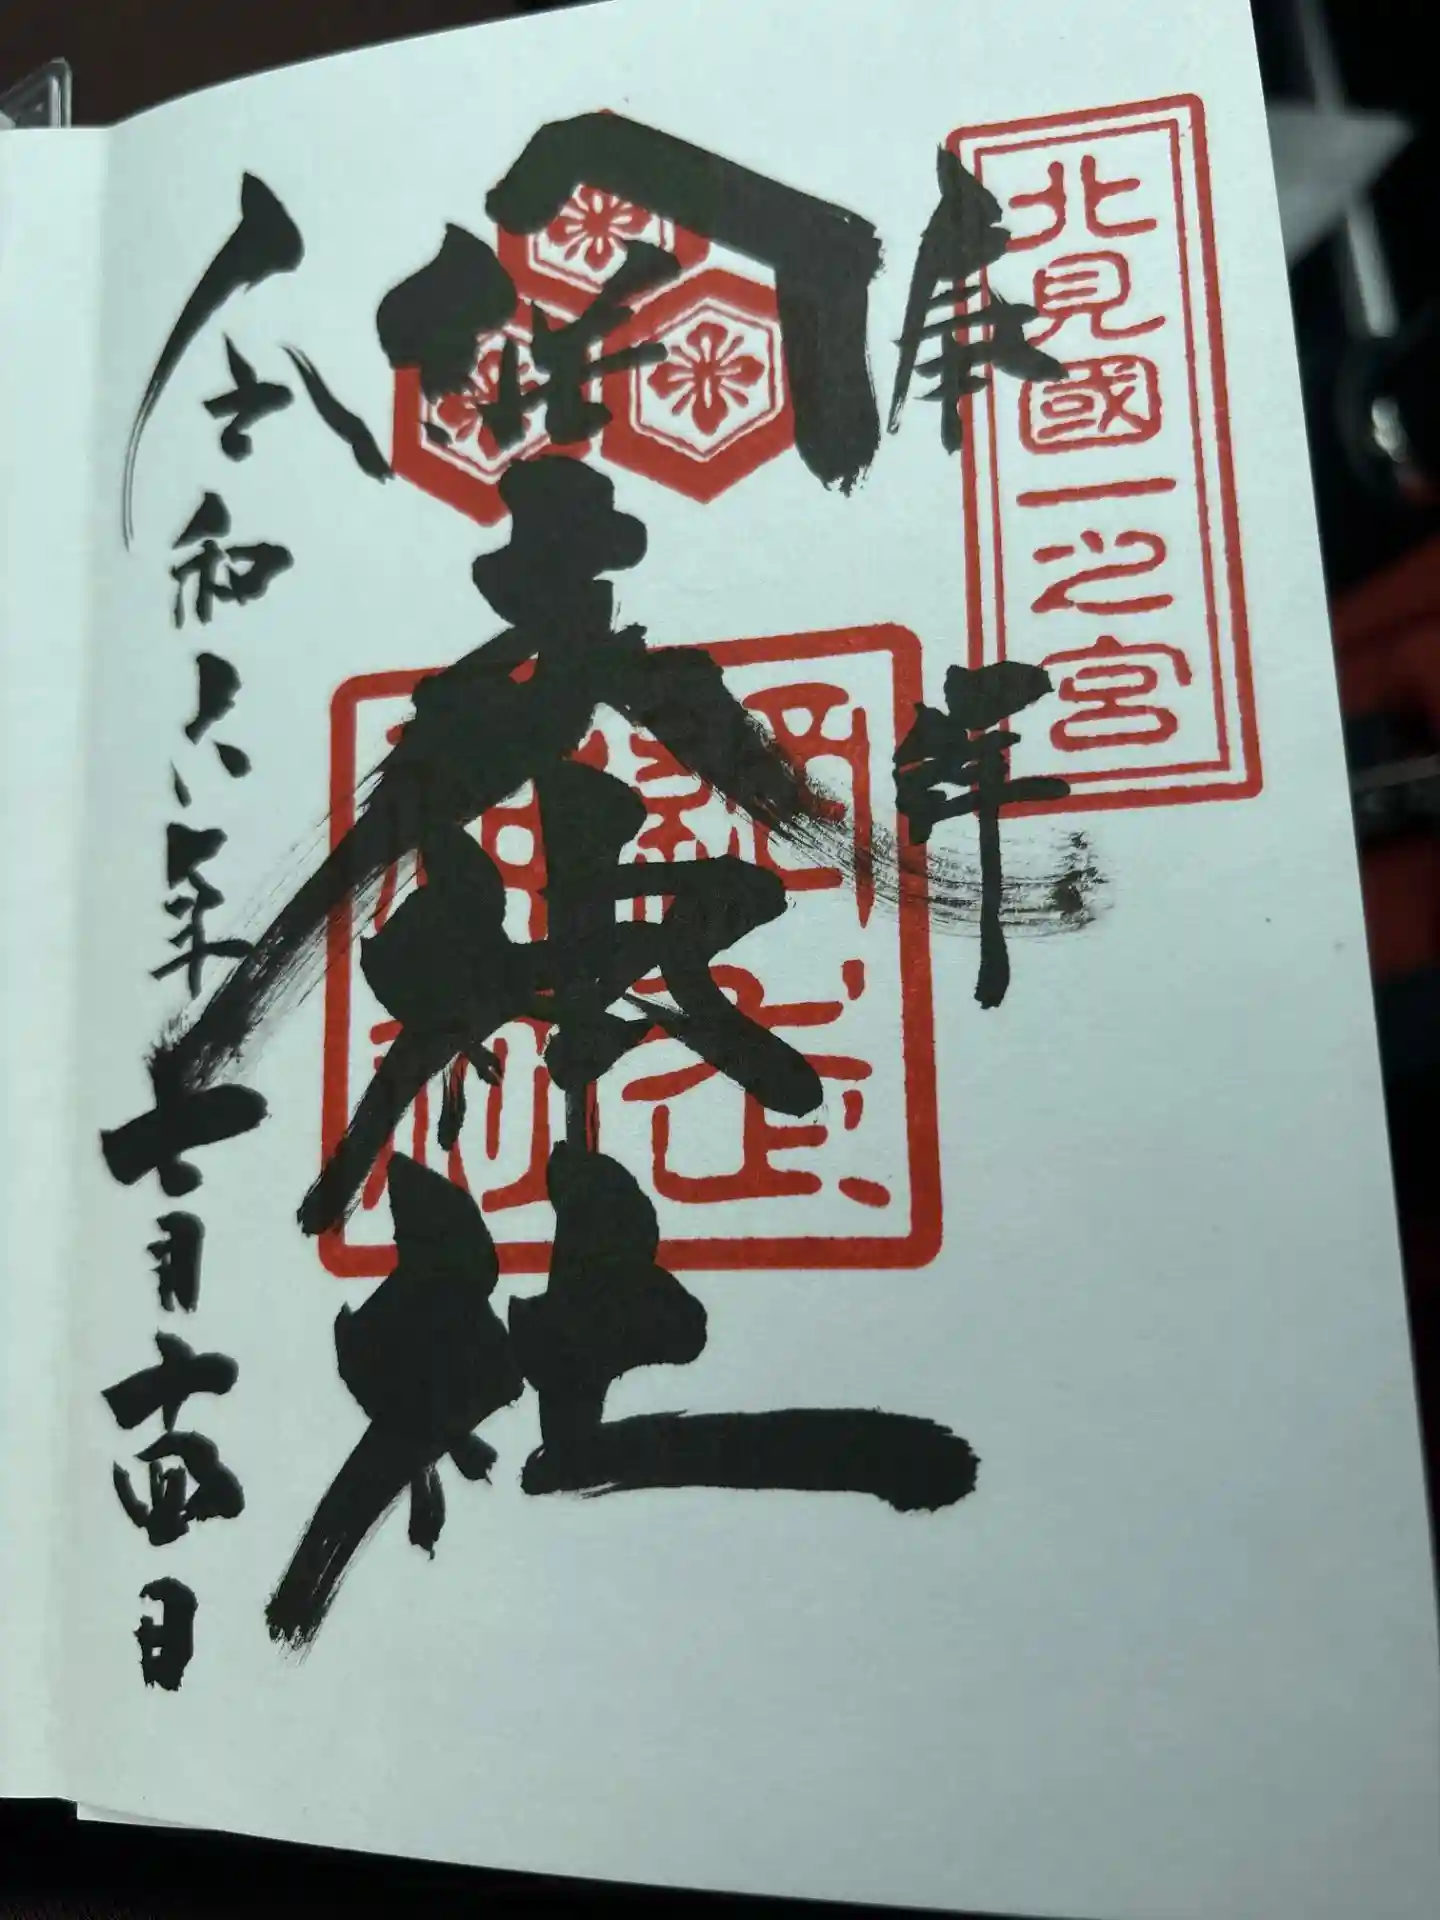 北見國一之宮
奉拝
網走神社
令和六年七月十四日